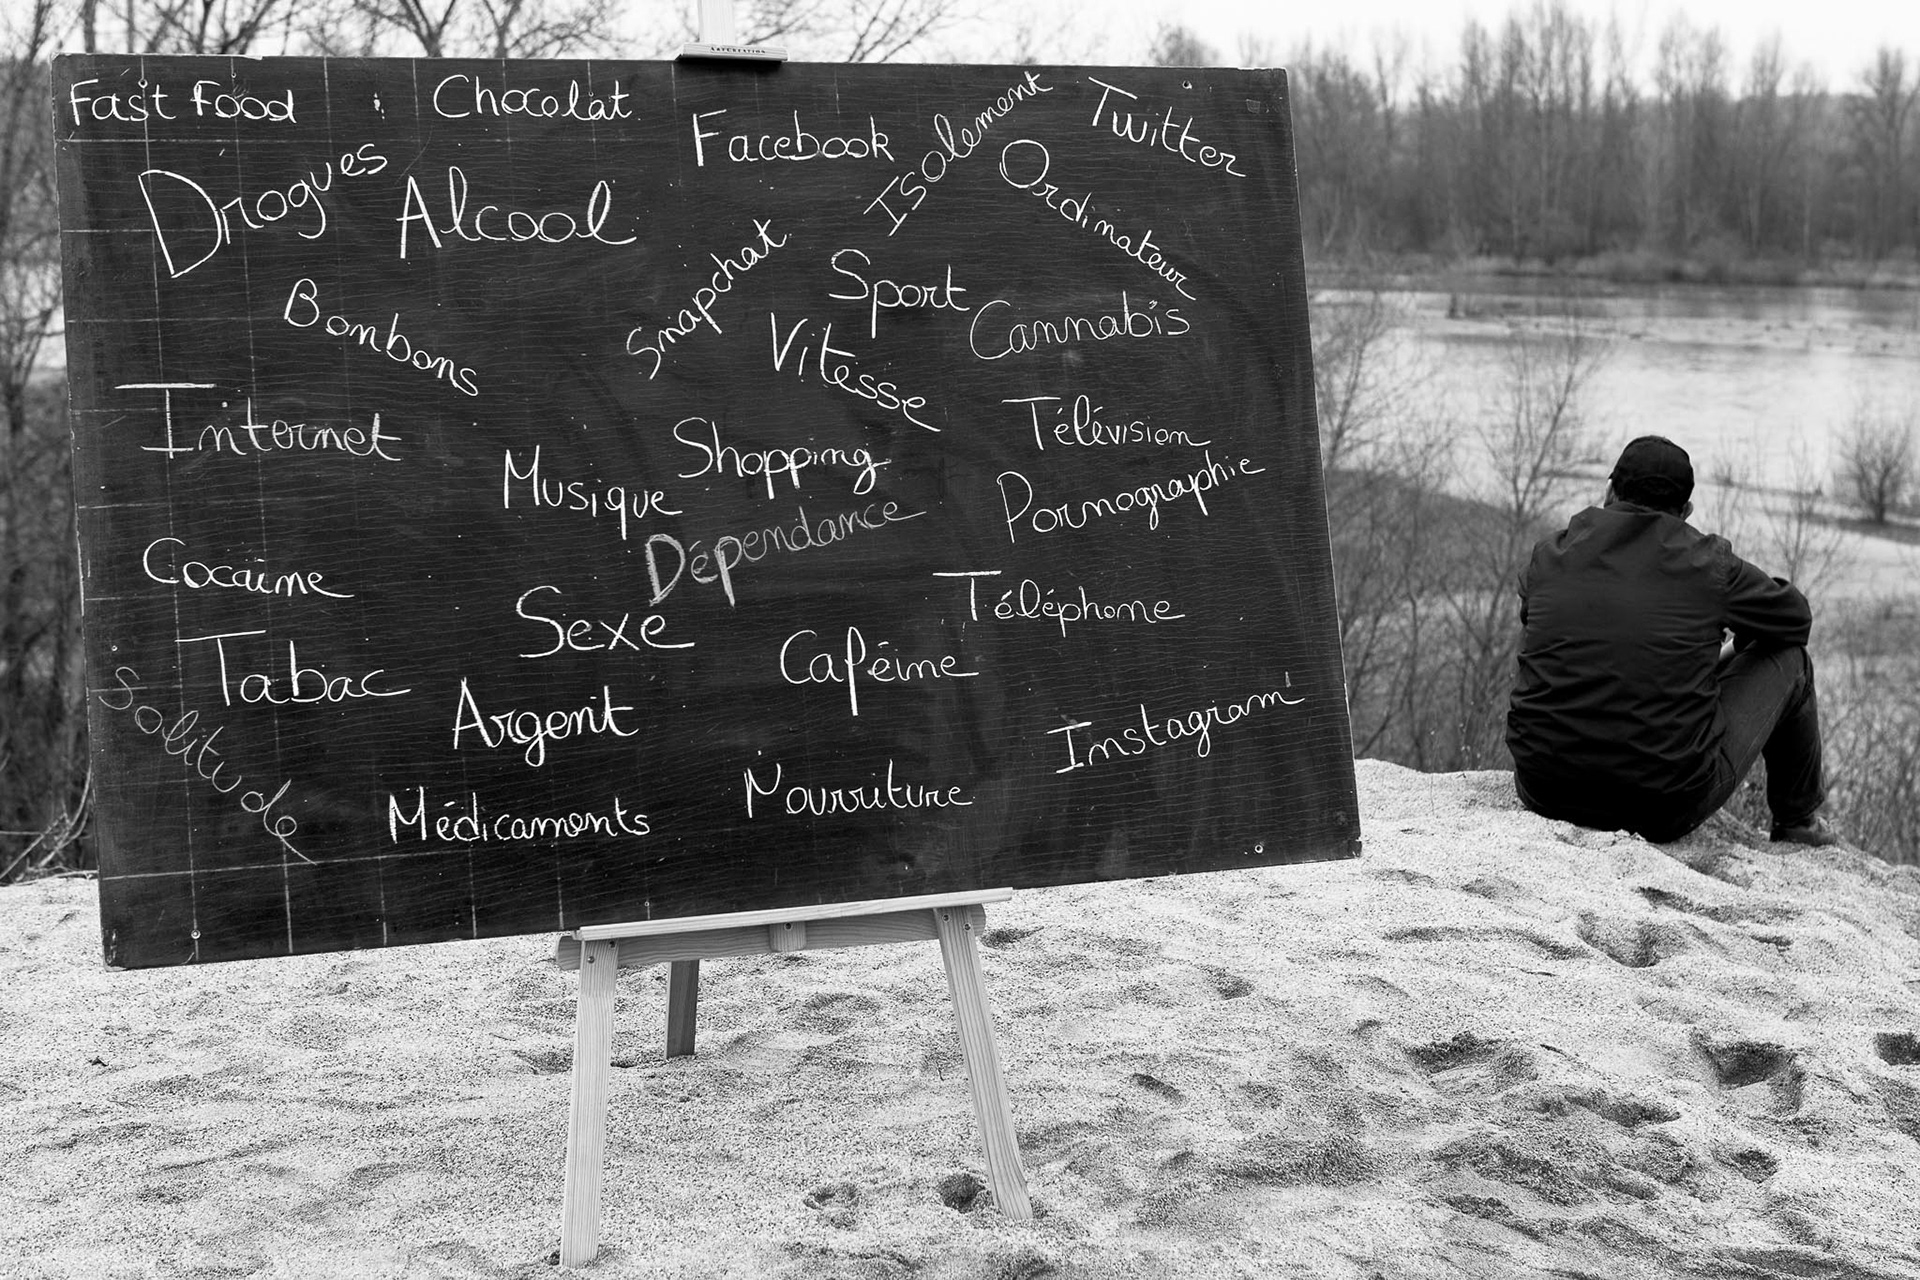 ARTCREATION
Fast Food
Chocolat
Facebook
Isolement
Twitter
Drogues
Alcool
Ordinateur
Bonbons
Snapchat
Sport
Cannabis
Vitesse
Internet
Musique
Shopping
Télévision
Pornographie
Dépendance
Cocaïne
Sexe
Téléphone
Tabac
Caféine
Solitude
Argent
Instagram
Médicaments
Nourriture